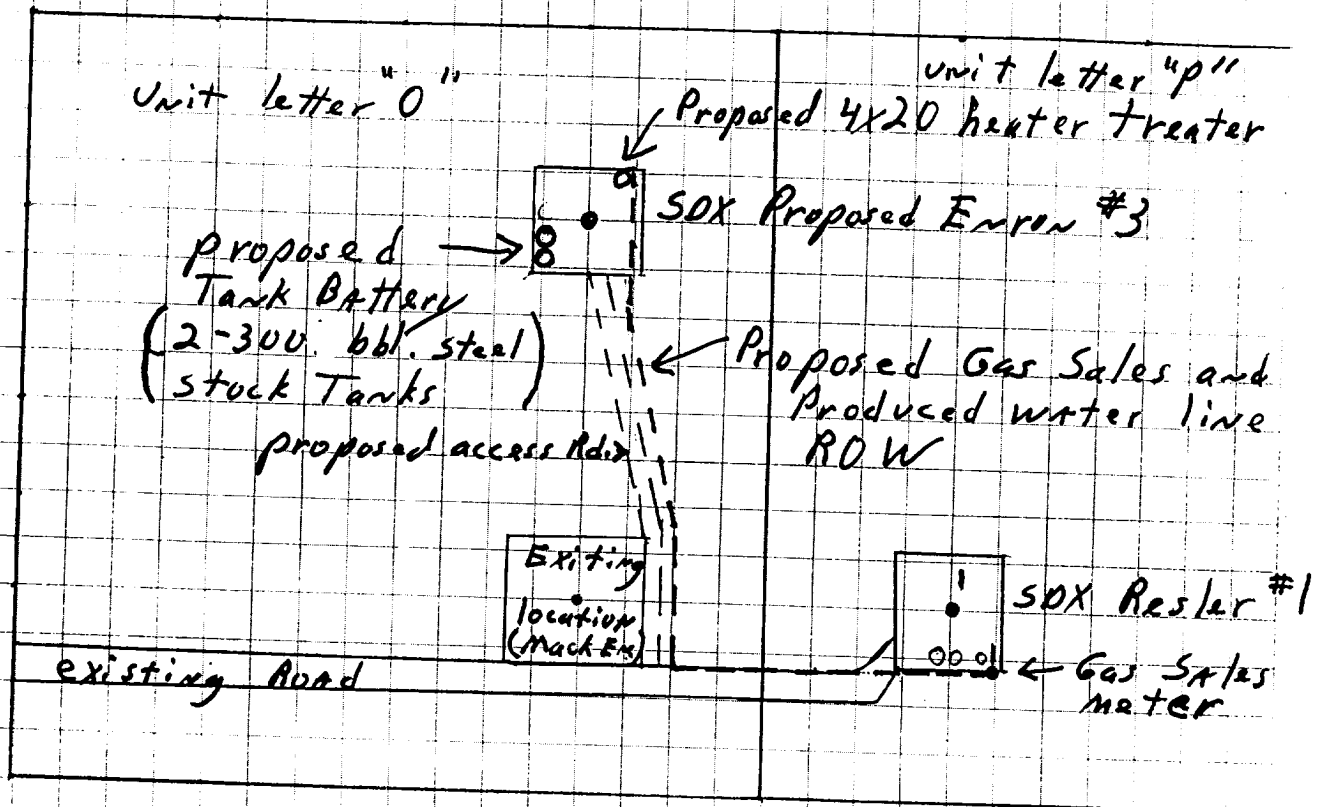 Unit letter "O"
unit letter "p"
Proposed 4x20 heater treater
SDX Proposed Enron #3
proposed
Tank Battery
(2-300. bbl. steel
stock Tanks)
Proposed Gas Sales and
Produced water line
ROW
proposed access Rd.
Exiting
location
(Mack En)
1
SDX Resler #1
existing Road
Gas Sales
meter